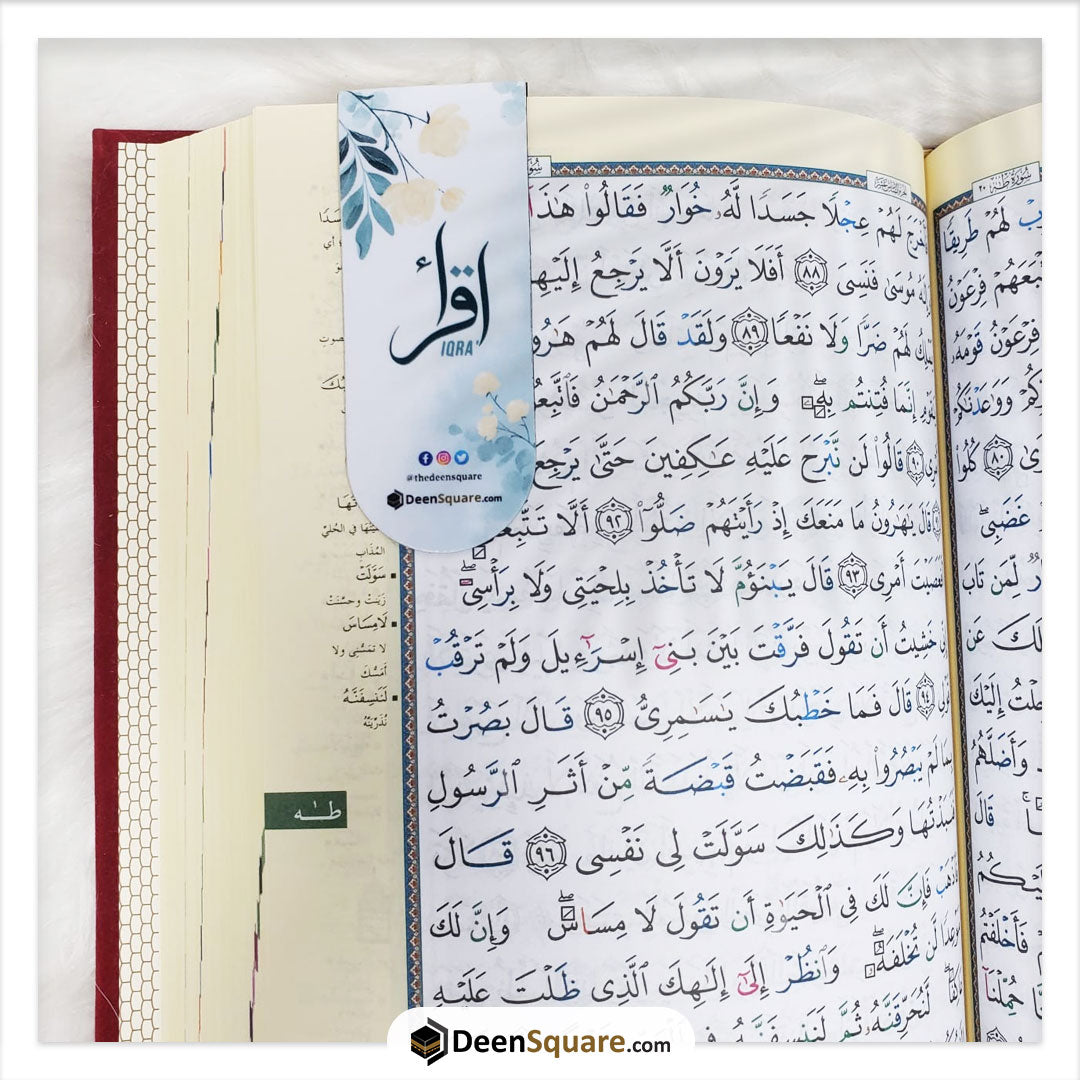 اقرأ
IQRA'
@thedeensquare
DeenSquare.com
سُورَةُ طه ٢٠
لَهُمْ عِجْلًا جَسَدًا لَّهُۥ خُوَارٌ فَقَالُوا۟ هَٰذَا
مُوسَىٰ فَنَسِىَ ٨٨ أَفَلَا يَرَوْنَ أَلَّا يَرْجِعُ إِلَيْهِ
لَهُمْ ضَرًّا وَلَا نَفْعًا ٨٩ وَلَقَدْ قَالَ لَهُمْ هَٰرُو
إِنَّمَا فُتِنتُم بِهِۦ وَإِنَّ رَبَّكُمُ ٱلرَّحْمَٰنُ فَٱتَّبِعُ
٩٠ قَالُوا۟ لَن نَّبْرَحَ عَلَيْهِ عَٰكِفِينَ حَتَّىٰ يَرْجِعَ
قَالَ يَٰهَٰرُونُ مَا مَنَعَكَ إِذْ رَأَيْتَهُمْ ضَلُّوٓا۟ ٩٢ أَلَّا تَتَّبِعَ
أَمْرِى ٩٣ قَالَ يَبْنَؤُمَّ لَا تَأْخُذْ بِلِحْيَتِى وَلَا بِرَأْسِىٓ
خَشِيتُ أَن تَقُولَ فَرَّقْتَ بَيْنَ بَنِىٓ إِسْرَٰٓءِيلَ وَلَمْ تَرْقُبْ
٩٤ قَالَ فَمَا خَطْبُكَ يَٰسَٰمِرِىُّ ٩٥ قَالَ بَصُرْتُ
بِمَا لَمْ يَبْصُرُوا۟ بِهِۦ فَقَبَضْتُ قَبْضَةً مِّنْ أَثَرِ ٱلرَّسُولِ
وَكَذَٰلِكَ سَوَّلَتْ لِى نَفْسِى ٩٦ قَالَ
فَإِنَّ لَكَ فِى ٱلْحَيَوٰةِ أَن تَقُولَ لَا مِسَاسَ وَإِنَّ لَكَ
لَّن تُخْلَفَهُۥ وَٱنظُرْ إِلَىٰٓ إِلَٰهِكَ ٱلَّذِى ظَلْتَ عَلَيْهِ
لَّنُحَرِّقَنَّهُۥ ثُمَّ لَنَنسِفَنَّهُۥ فِى
المُذَابِ
سَوَّلَتْ
زَيَّنَتْ وحسَّنَتْ
لَا مِسَاسَ
لا تمَسُّنِي ولا
أَمَسُّكَ
لَنَنسِفَنَّهُ
لنُذَرِّيَنَّهُ
طـه
لَهُمْ طَرِيقًا
فِرْعَوْنُ
فِرْعَوْنُ قَوْمَهُۥ
وَوَٰعَدْنَٰكُمْ
٨٠ كُلُوا۟
غَضَبِى
لِّمَن تَابَ
عَن
إِلَيْكَ
وَأَضَلَّهُمُ
قَالَ
فَأَخْلَفْتُم
حُمِّلْنَآ
DeenSquare.com